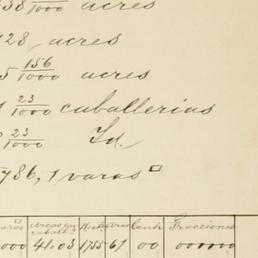 38/1000 acres
728, acres
5 156/1000 acres
1 23/1000 caballerias
23/1000 Id.
786,1 varas □
varas acres en caball.s Hect areas Cent. Fracciones
000 41.03 1755 61 00 000000